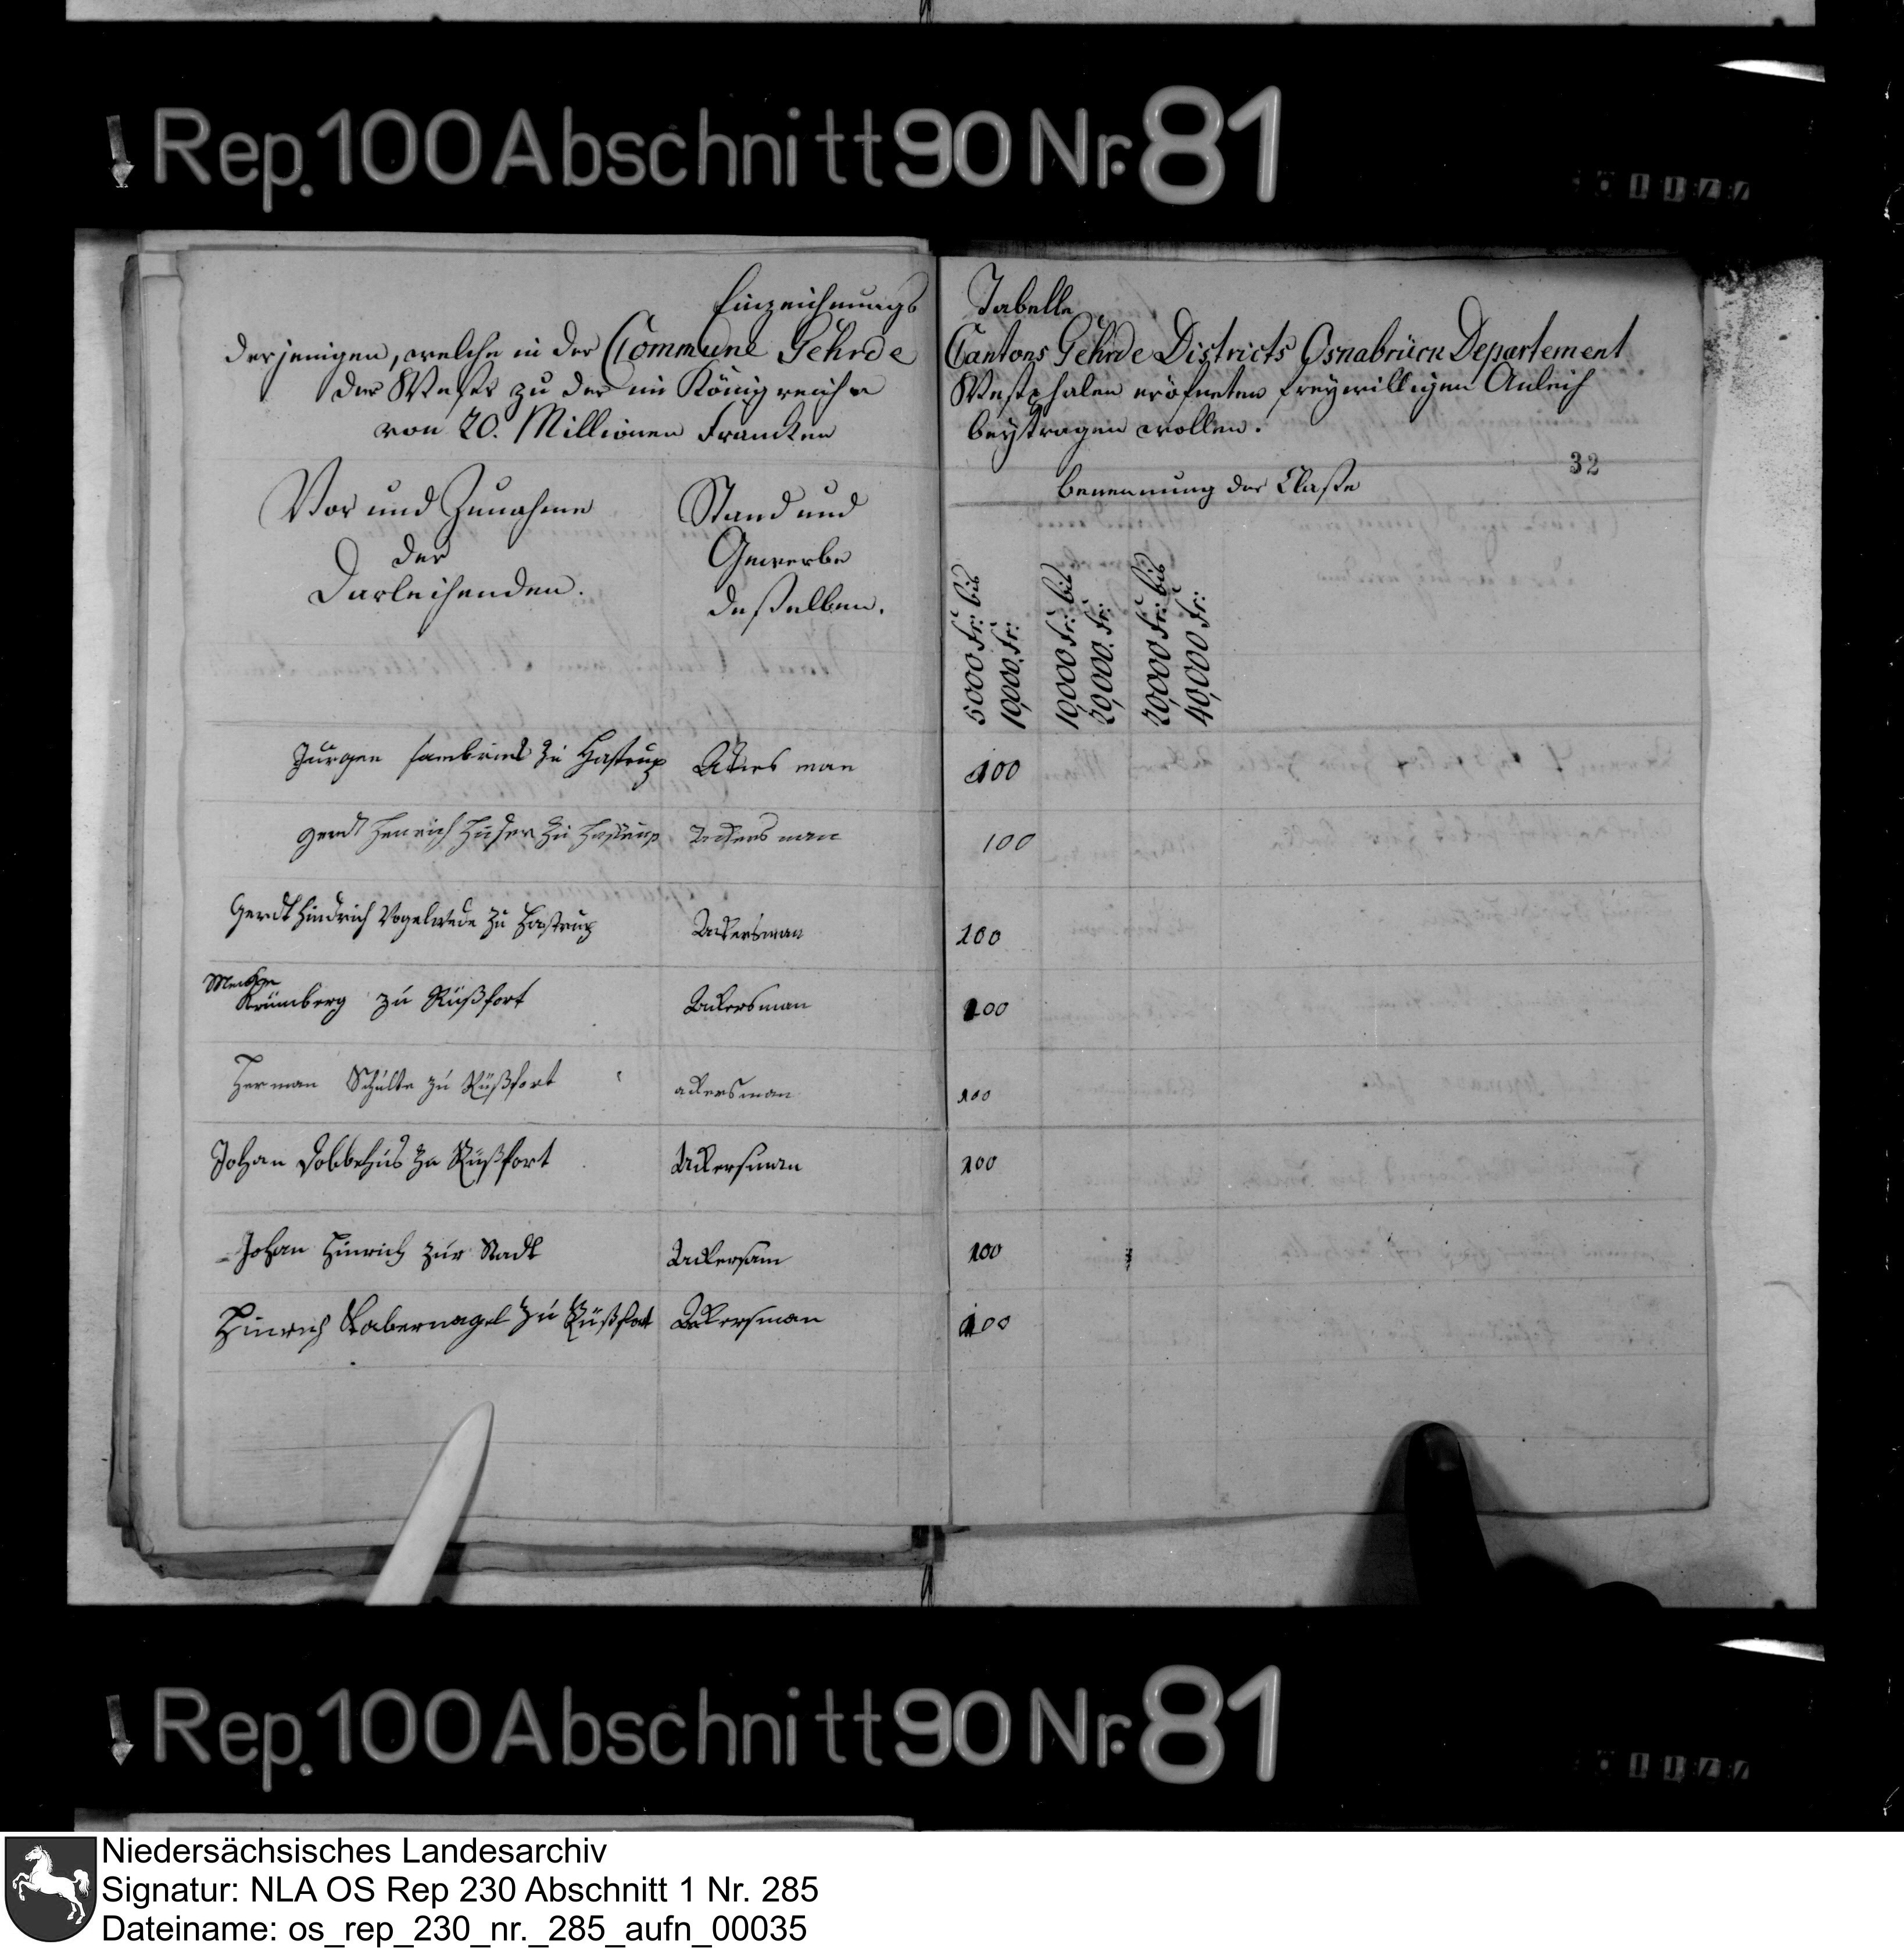 Rep. 100 Abschnitt 90 Nr. 81
Einzeichnungs Tabelle
derjenigen, welche in der Commune Gehrde Cantons Gehrde Districts Osnabrück Departement
der Weser zu der im Königreiche Westphalen eröfneten freywilligen Anleih
von 20. Millionen Francken beytragen wollen.
32
Vor und Zunahme
der
Darleihenden.
Stand und
Gewerbe
deßelben.
Benennung der Claße
5000 Fr: bis
10,000. Fr:
10,000 Fr: bis
20,000. Fr:
20,000 Fr: bis
40,000 Fr:
Jurgen zu Hastrup man 100
Gerdt Henrich Huser zu Hastrup Ackersman 100
Gerdt Hindrich Vogelwede zu Hastrup Ackersman 100
Krümberg zu Rüßfort Ackersman 100
Herman Schulte zu Rüßfort ackersman 100
Johan Dobbehus zu Rüßfort Ackersman 100
Johan Hinrich zur Stadt Ackersam 100
Hinrich Tabernagel zu Rüßfort Ackersman 100
Rep. 100 Abschnitt 90 Nr. 81
Niedersächsisches Landesarchiv
Signatur: NLA OS Rep 230 Abschnitt 1 Nr. 285
Dateiname: os_rep_230_nr._285_aufn_00035